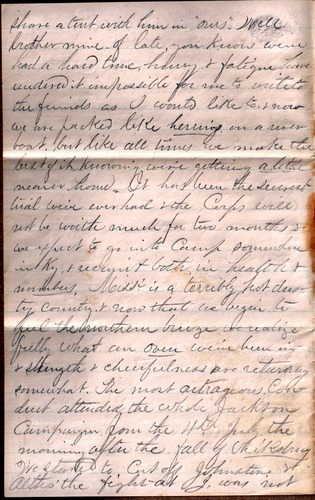 share a tent with him in "ours". Well
brother mine of late, you know we've
had a hard time, heavy & fatigue have
rendered it impossible for me to write to
the friends as I would like to, & now
we are packed like herring on a river
boat, but like all times we make the
best of it, knowing we're getting a little
nearer home. It has been the severest
trial we've ever had & the Corps will
not be worth much for two months &
we expect to go into Camp somewhere
in Ky, & recruit both in health &
numbers, Miss is a terribly hot dus-
ty country, & now that we begin to
feel the northern breeze we realize
fully what an oven we've been in
& strength & cheerfulness are returning
somewhat. The most outrageous Con-
duct attended the whole Jackson
Campaign, from the 4th July the
morning after the fall of Vicksburg
We started to Cut off Johnston &
the fight at J. was not